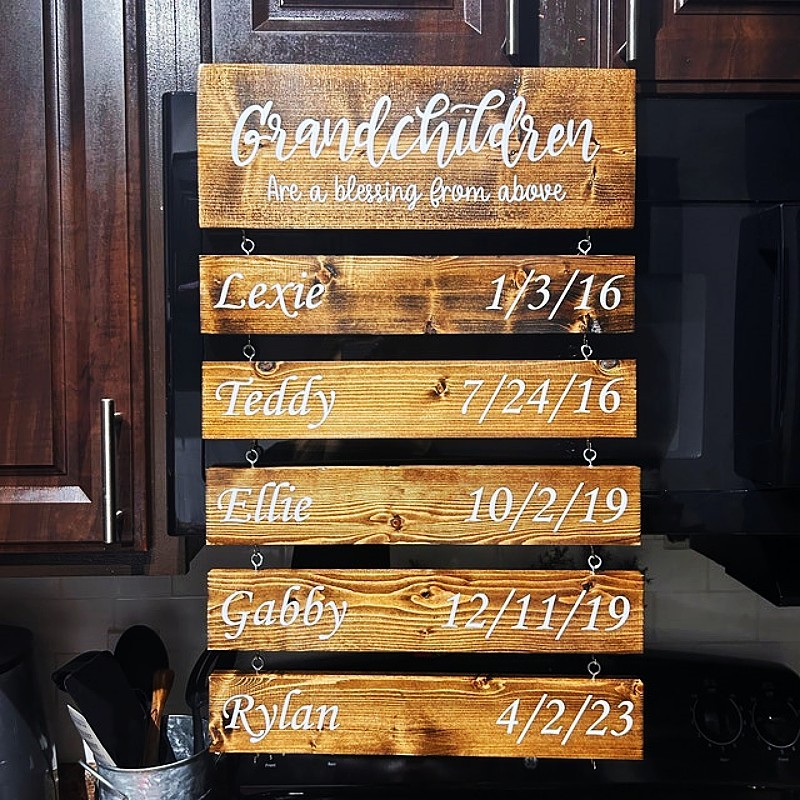 Grandchildren
Are a blessing from above
Lexie 1/3/16
Teddy 7/24/16
Ellie 10/2/19
Gabby 12/11/19
Rylan 4/2/23